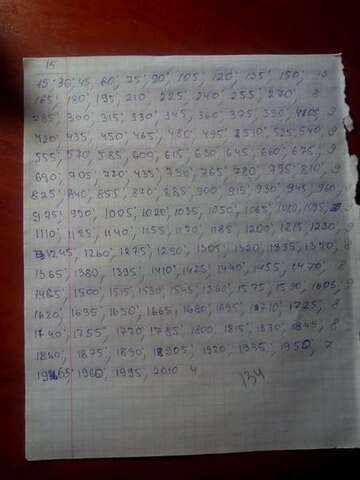 15
15; 30; 45, 60; 75; 90; 105, 120; 135; 150; 10
165; 180; 195; 210; 225; 240; 255; 270; 8
285, 300; 315; 330; 345, 360; 375, 390, 405, 9
420; 435, 450; 465, 480; 495; 510; 525; 540 9
555; 570; 585; 600; 615; 630; 645, 660; 675, 9
690; 705, 720; 435; 750; 765; 780; 795; 810; 9
825; 840; 855, 870; 885, 900; 915, 930; 945, 960,
975, 990; 1005; 1020; 1035, 1050; 1065; 1080, 1095,
1110; 1125, 1140; 1155, 1170; 1185, 1200, 1215, 1230, 9
1245, 1260; 1275; 1290; 1305; 1320, 1335, 1350, 8
1365; 1380, 1395; 1410; 1425; 1440, 1455, 1470, 8
1485, 1500, 1515, 1530, 1545, 1560, 1575, 1590, 1605, 9
1620; 1635, 1650; 1665, 1680; 1695; 1710; 1725, 8
1740; 1755, 1770, 1785, 1800, 1815, 1830, 1845, 8
1860; 1875, 1890, 1905; 1920, 1935; 1950, 7
1965, 1980, 1995, 2010 4
134